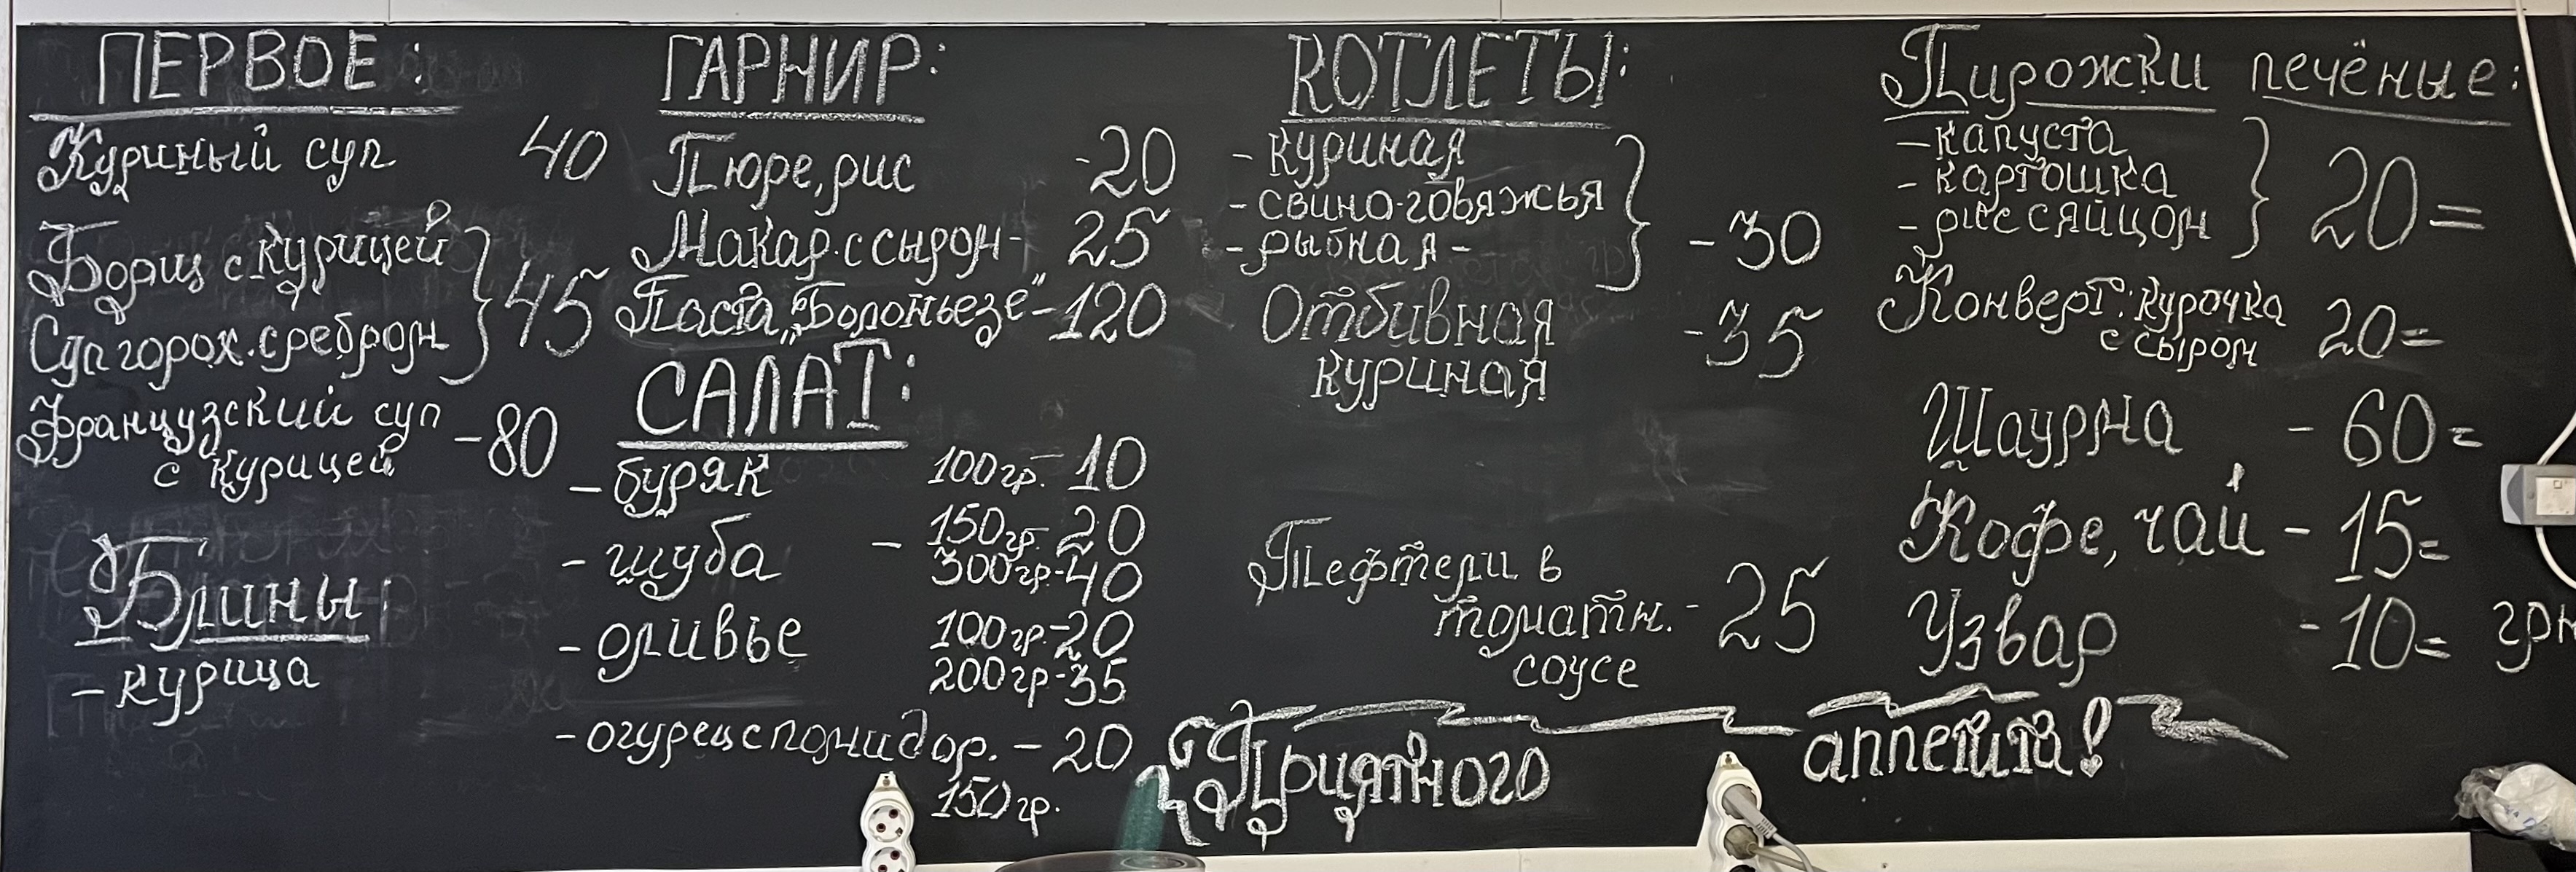 ПЕРВОЕ:
Куриный суп 40
Борщ с курицей
Суп горох. с ребром
45
Французский суп
с курицей -80
Блины:
- курица
ГАРНИР:
Пюре, рис -20
Макар. с сыром- 25
Паста „Болоньезе“-120
САЛАТ:
- буряк 100гр.- 10
- шуба - 150гр.- 20
300гр.-40
- оливье 100гр.-20
200гр-35
- огурец с помидор. - 20
150гр.
КОТЛЕТЫ:
- куриная
- свино-говяжья
- рыбная -
-30
Отбивная -35
куриная
Тефтели в
томатн. - 25
соусе
Пирожки печёные:
- капуста
- картошка
- рис с яйцом
20=
Конверт: курочка
с сыром 20=
Шаурма - 60=
Кофе, чай - 15=
Узвар - 10= грн
Приятного аппетита!